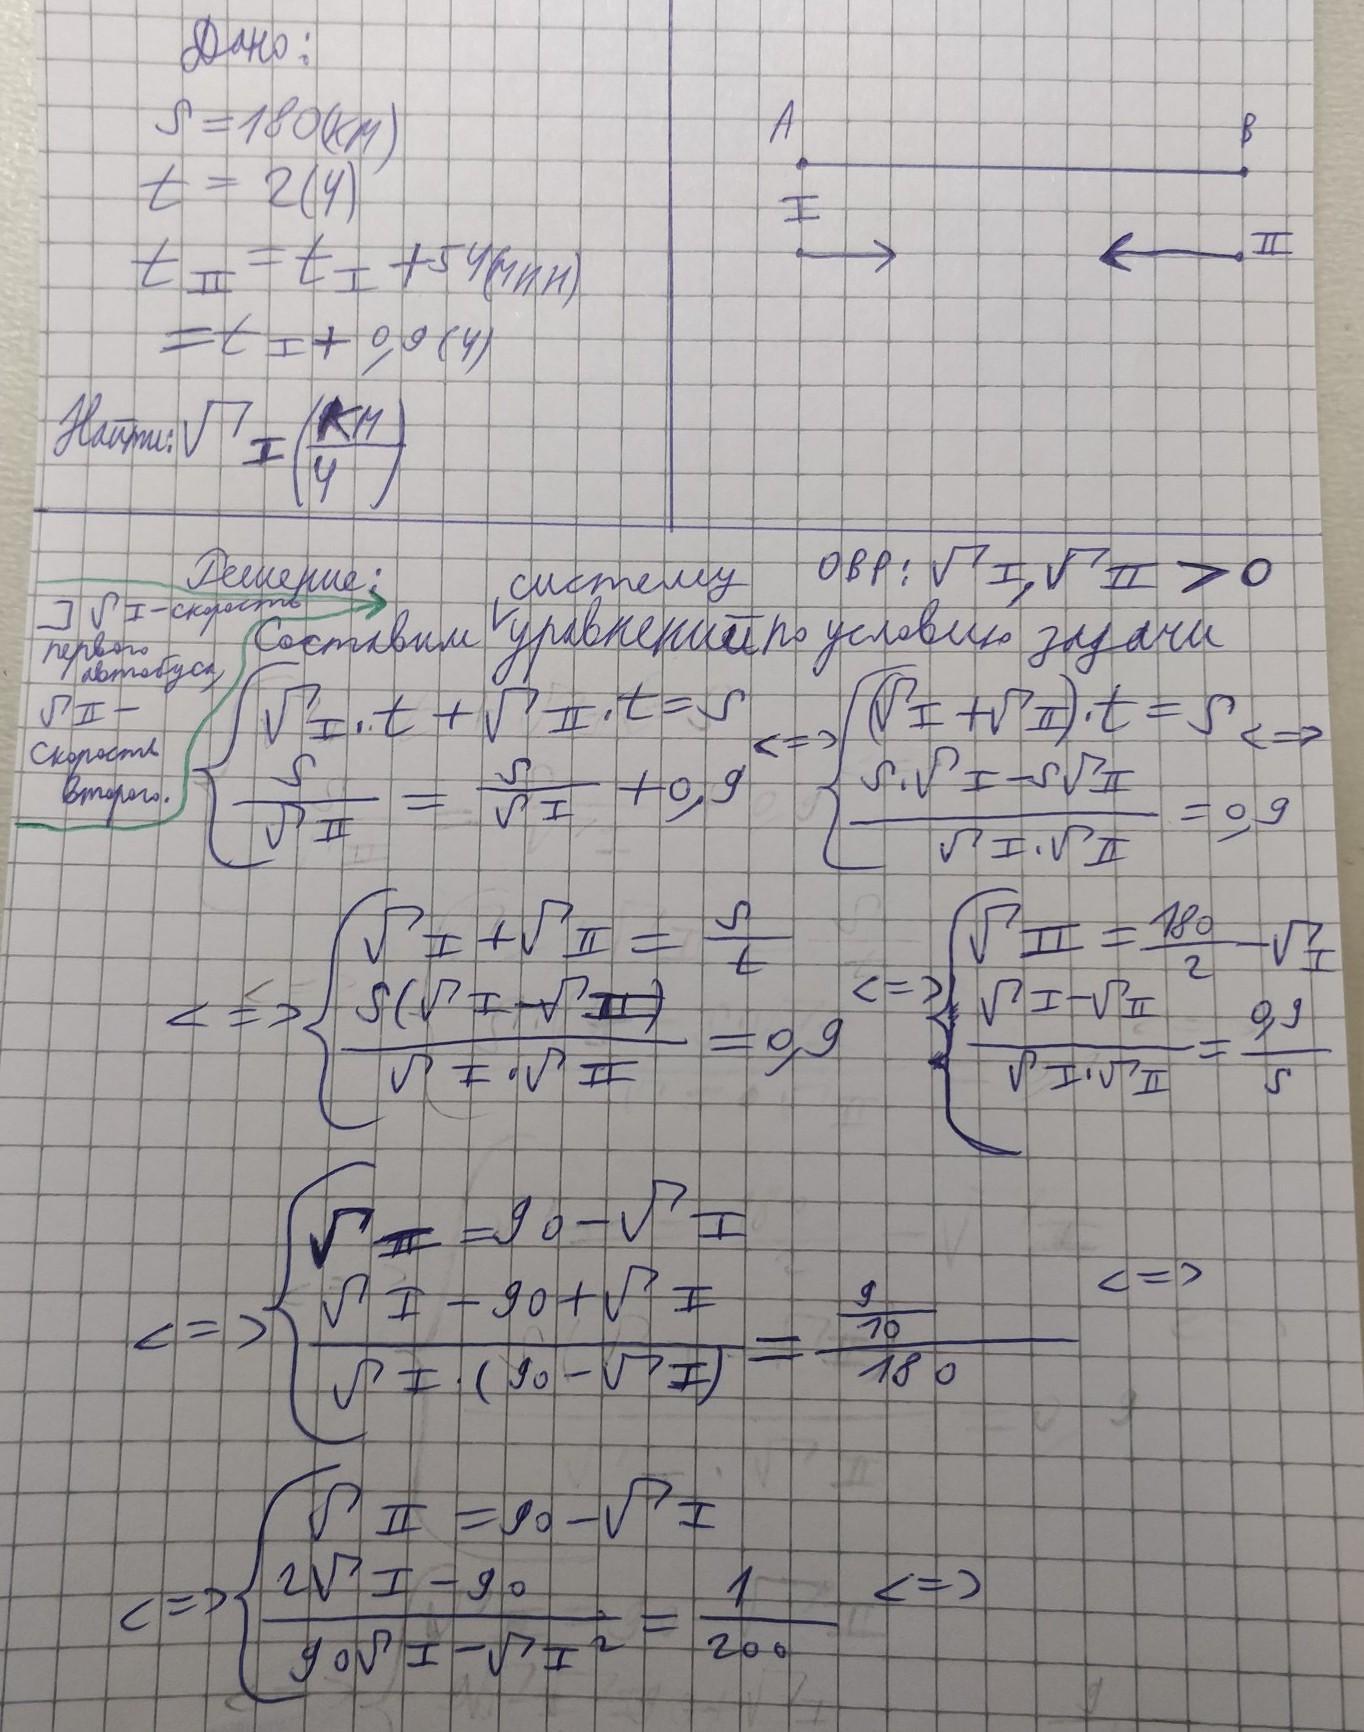 Дано:
S = 180(км)
t = 2(ч)
t II = t I + 54(мин)
= t I + 0,9(ч)
Найти: V I (км/ч)
A B
I
II
Решение: ОВР: V I, V II > 0
] V I - скорость первого автобуса,
V II - скорость второго.
Составим систему уравнений по условию задачи
{ V I · t + V II · t = S <=> { (V I + V II) · t = S <=>
S / V II = S / V I + 0,9
(S · V I - S V II) / (V I · V II) = 0,9
<=> { V I + V II = S / t <=> { V II = 180 / 2 - V I
S(V I - V II) / (V I · V II) = 0,9
(V I - V II) / (V I · V II) = 0,9 / S
<=> { V II = 90 - V I
(V I - 90 + V I) / (V I · (90 - V I)) = (9/10) / 180 <=>
<=> { V II = 90 - V I
(2V I - 90) / (90V I - V I²) = 1 / 200 <=>